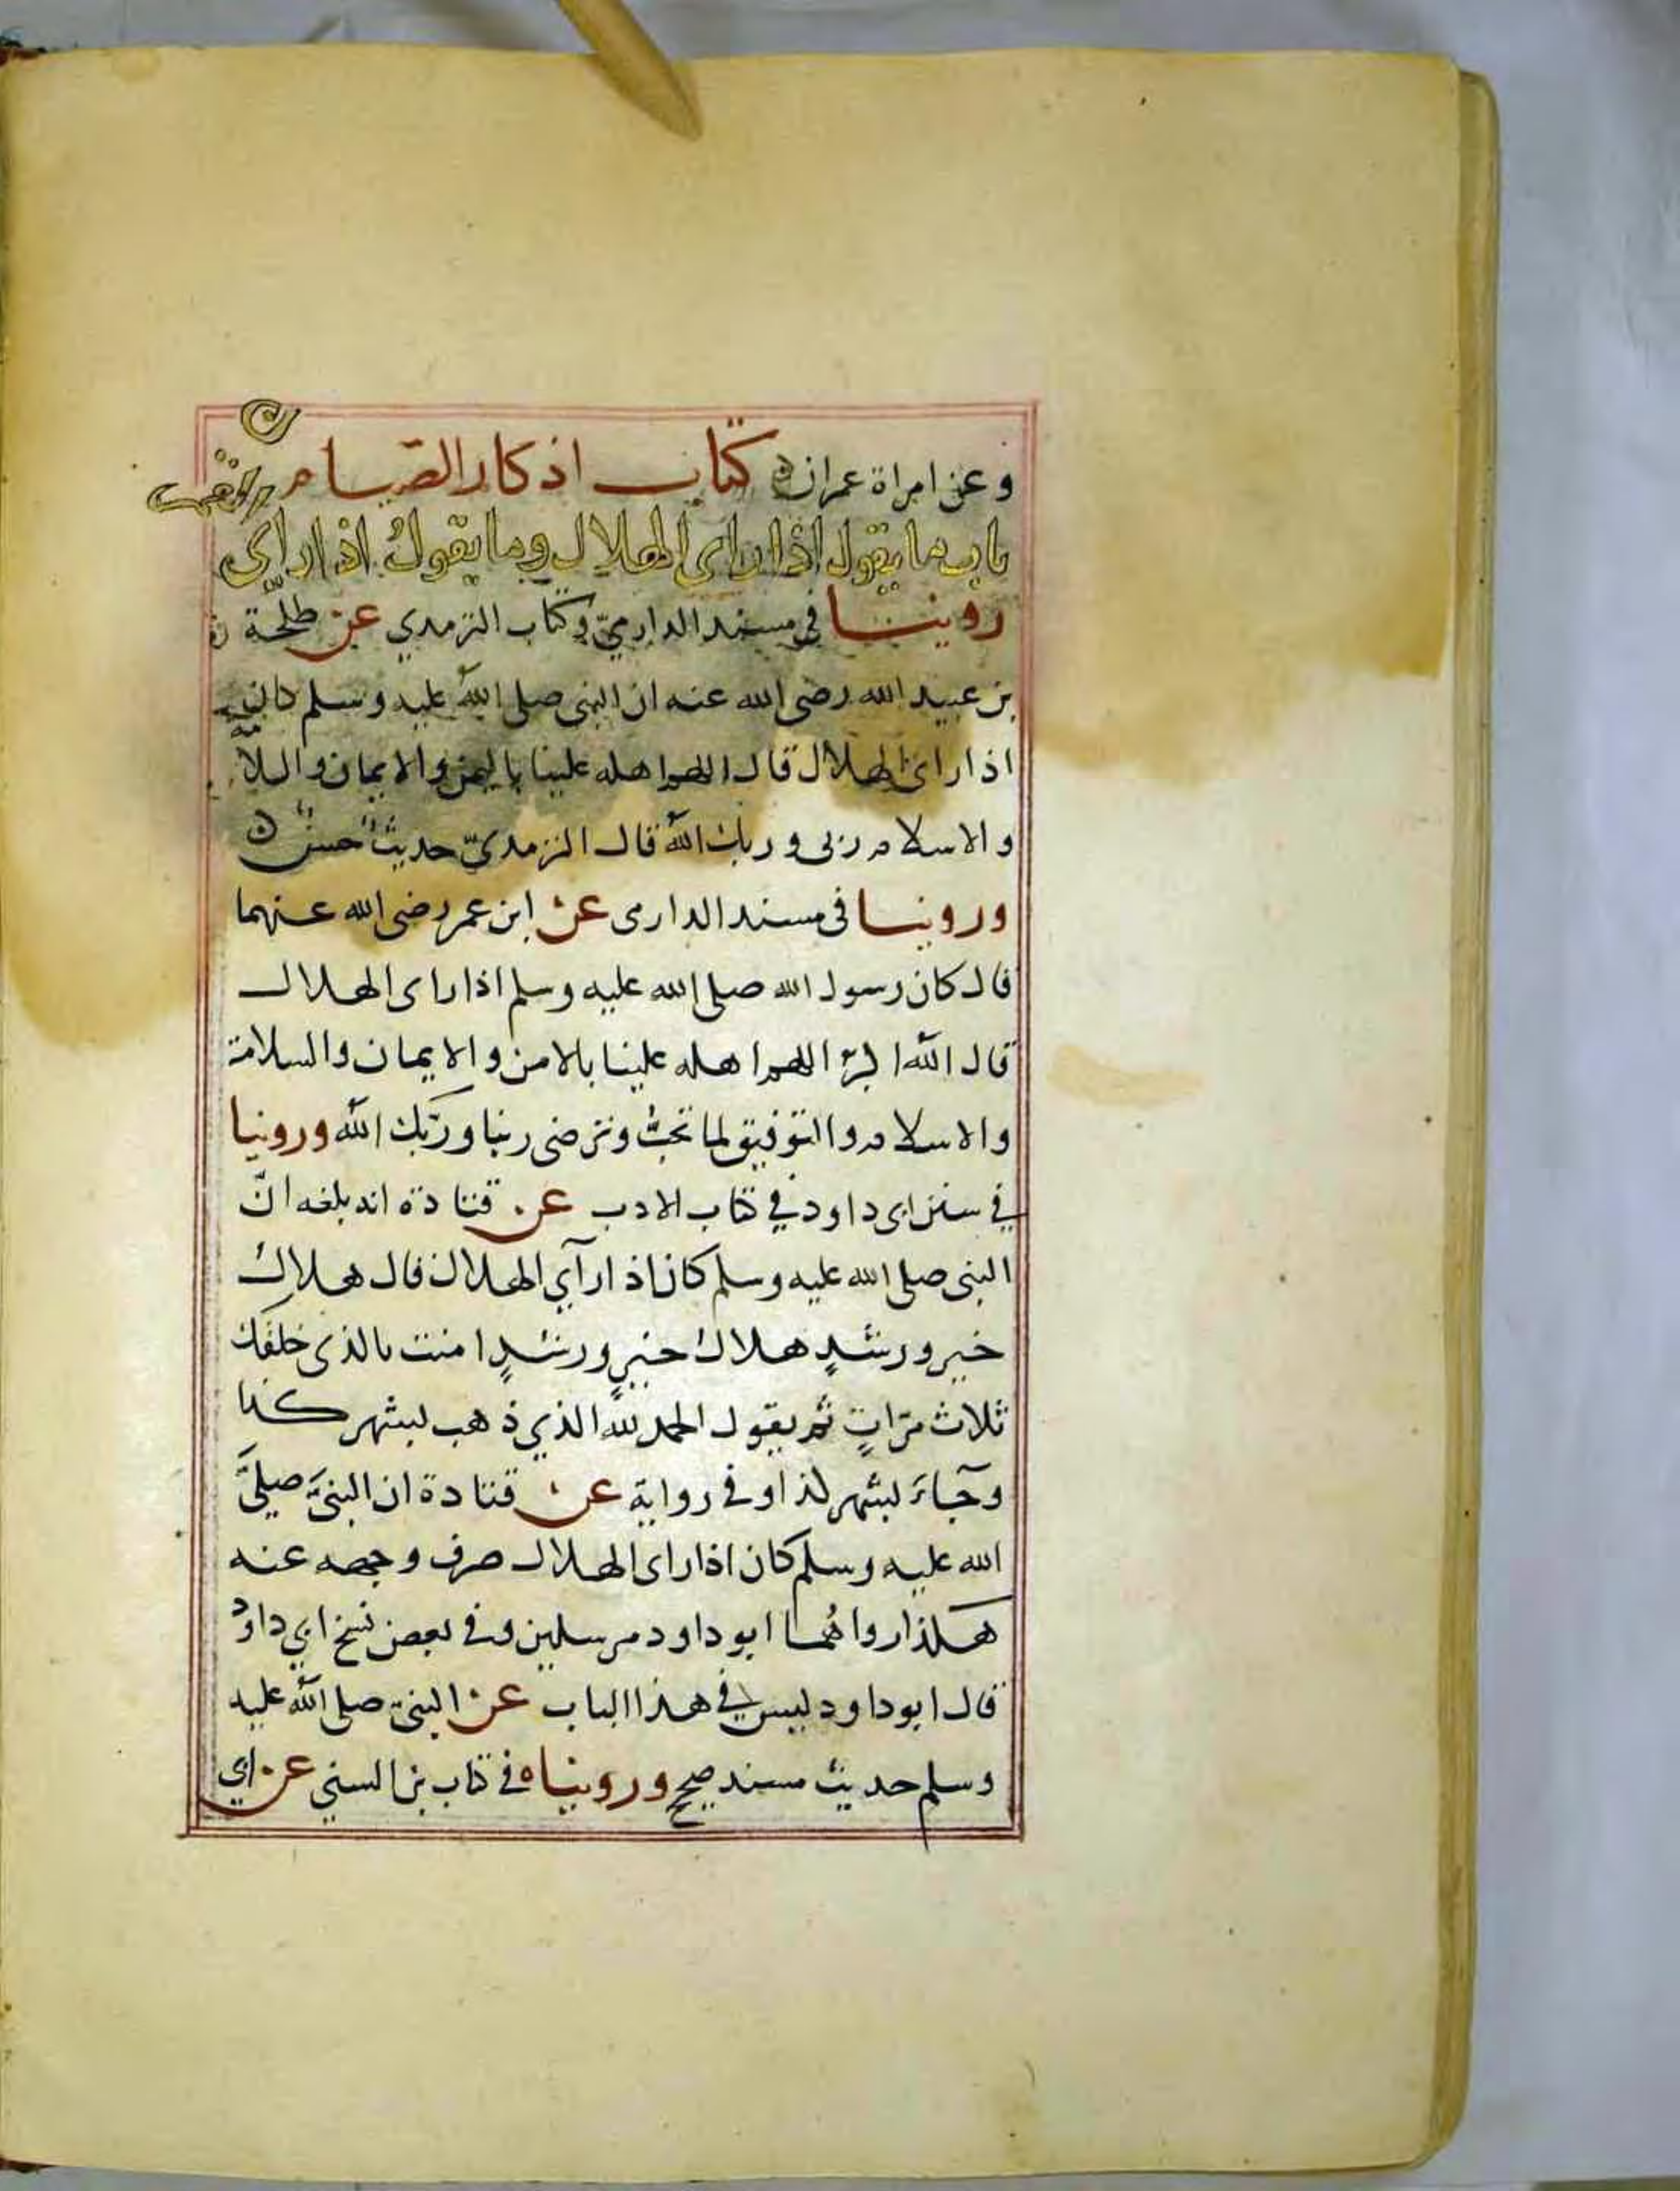 وعن امراة عمران كتاب اذكار الصيام
باب ما يقول اذا راى الهلال وما يقول اذا راى القمر
روينا في مسند الدارميّ وكتاب الترمذي عن طلحة
بن عبيد الله رضى الله عنه ان النبى صلى الله عليه وسلم كان
اذا راى الهلال قال اللهم اهله علينا باليمن والايمان والسلا
والاسلام ربى وربك الله قال الترمذىّ حديث حسن
وروينا فى مسند الدارمى عن ابن عمر رضى الله عنهما
قال كان رسول الله صلى الله عليه وسلم اذا راى الهلال
قال الله اكبر اللهم اهله علينا بالامن والايمان والسلامة
والاسلام والتوفيق لما تحبّ وترضى ربنا وربّك الله وروينا
في سنن ابى داود في كتاب الادب عن قتادة انه بلغه انّ
النبى صلى الله عليه وسلم كان اذا رآي الهلال قال هلال
خير ورشدٍ هلال خيرٍ ورشدٍ امنت بالذى خلقك
ثلاث مرّاتٍ ثم يقول الحمد لله الذي ذهب لبشهر كذا
وجآءَ لبشهر كذا وفي رواية عن قتادة ان النبىَّ صلىَّ
الله عليه وسلم كان اذا راى الهلال صرف وجهه عنه
هكذا رواهُما ابو داود مرسلين وفي بعض نسخ ابي داودُ
قال ابو داود ليس في هذا الباب عن النبىّ صلى الله عليه
وسلم حديث مسند صحيح وروينا ه في كتاب بن السني عن ابي